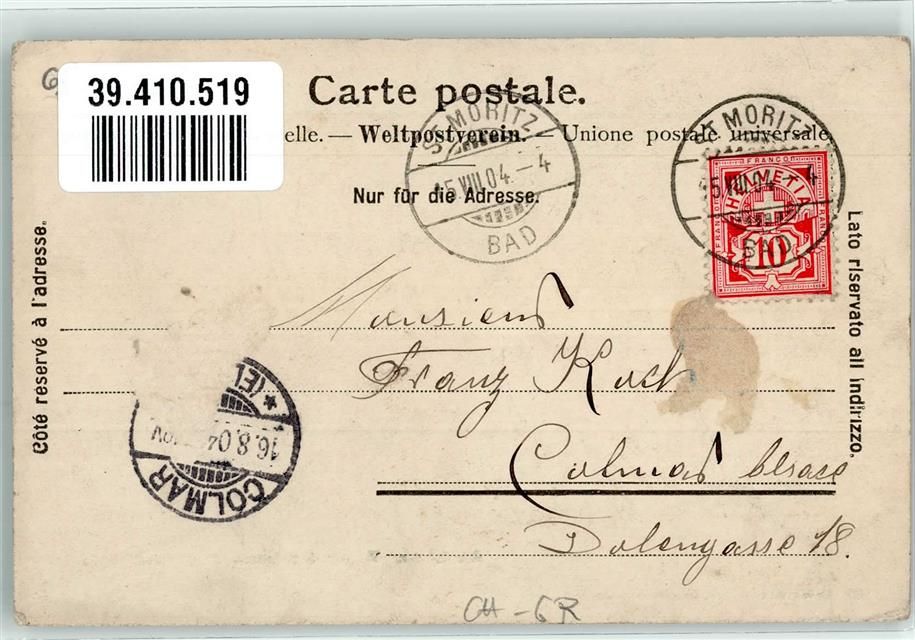 39.410.519
Carte postale.
elle. — Weltpostverein. — Unione postale universale
Nur für die Adresse.
ST MORITZ
15.VIII.04.-4
BAD
ST MORITZ
15.VIII.04.-4
BAD
FRANCO
HELVETIA
10
Côté reservé à l'adresse.
Lato riservato all indirizzo.
Monsieur
Franz Koch
Colmar Alsace
Dolengasse 18.
COLMAR
16.8.04
*(El
CH - GR